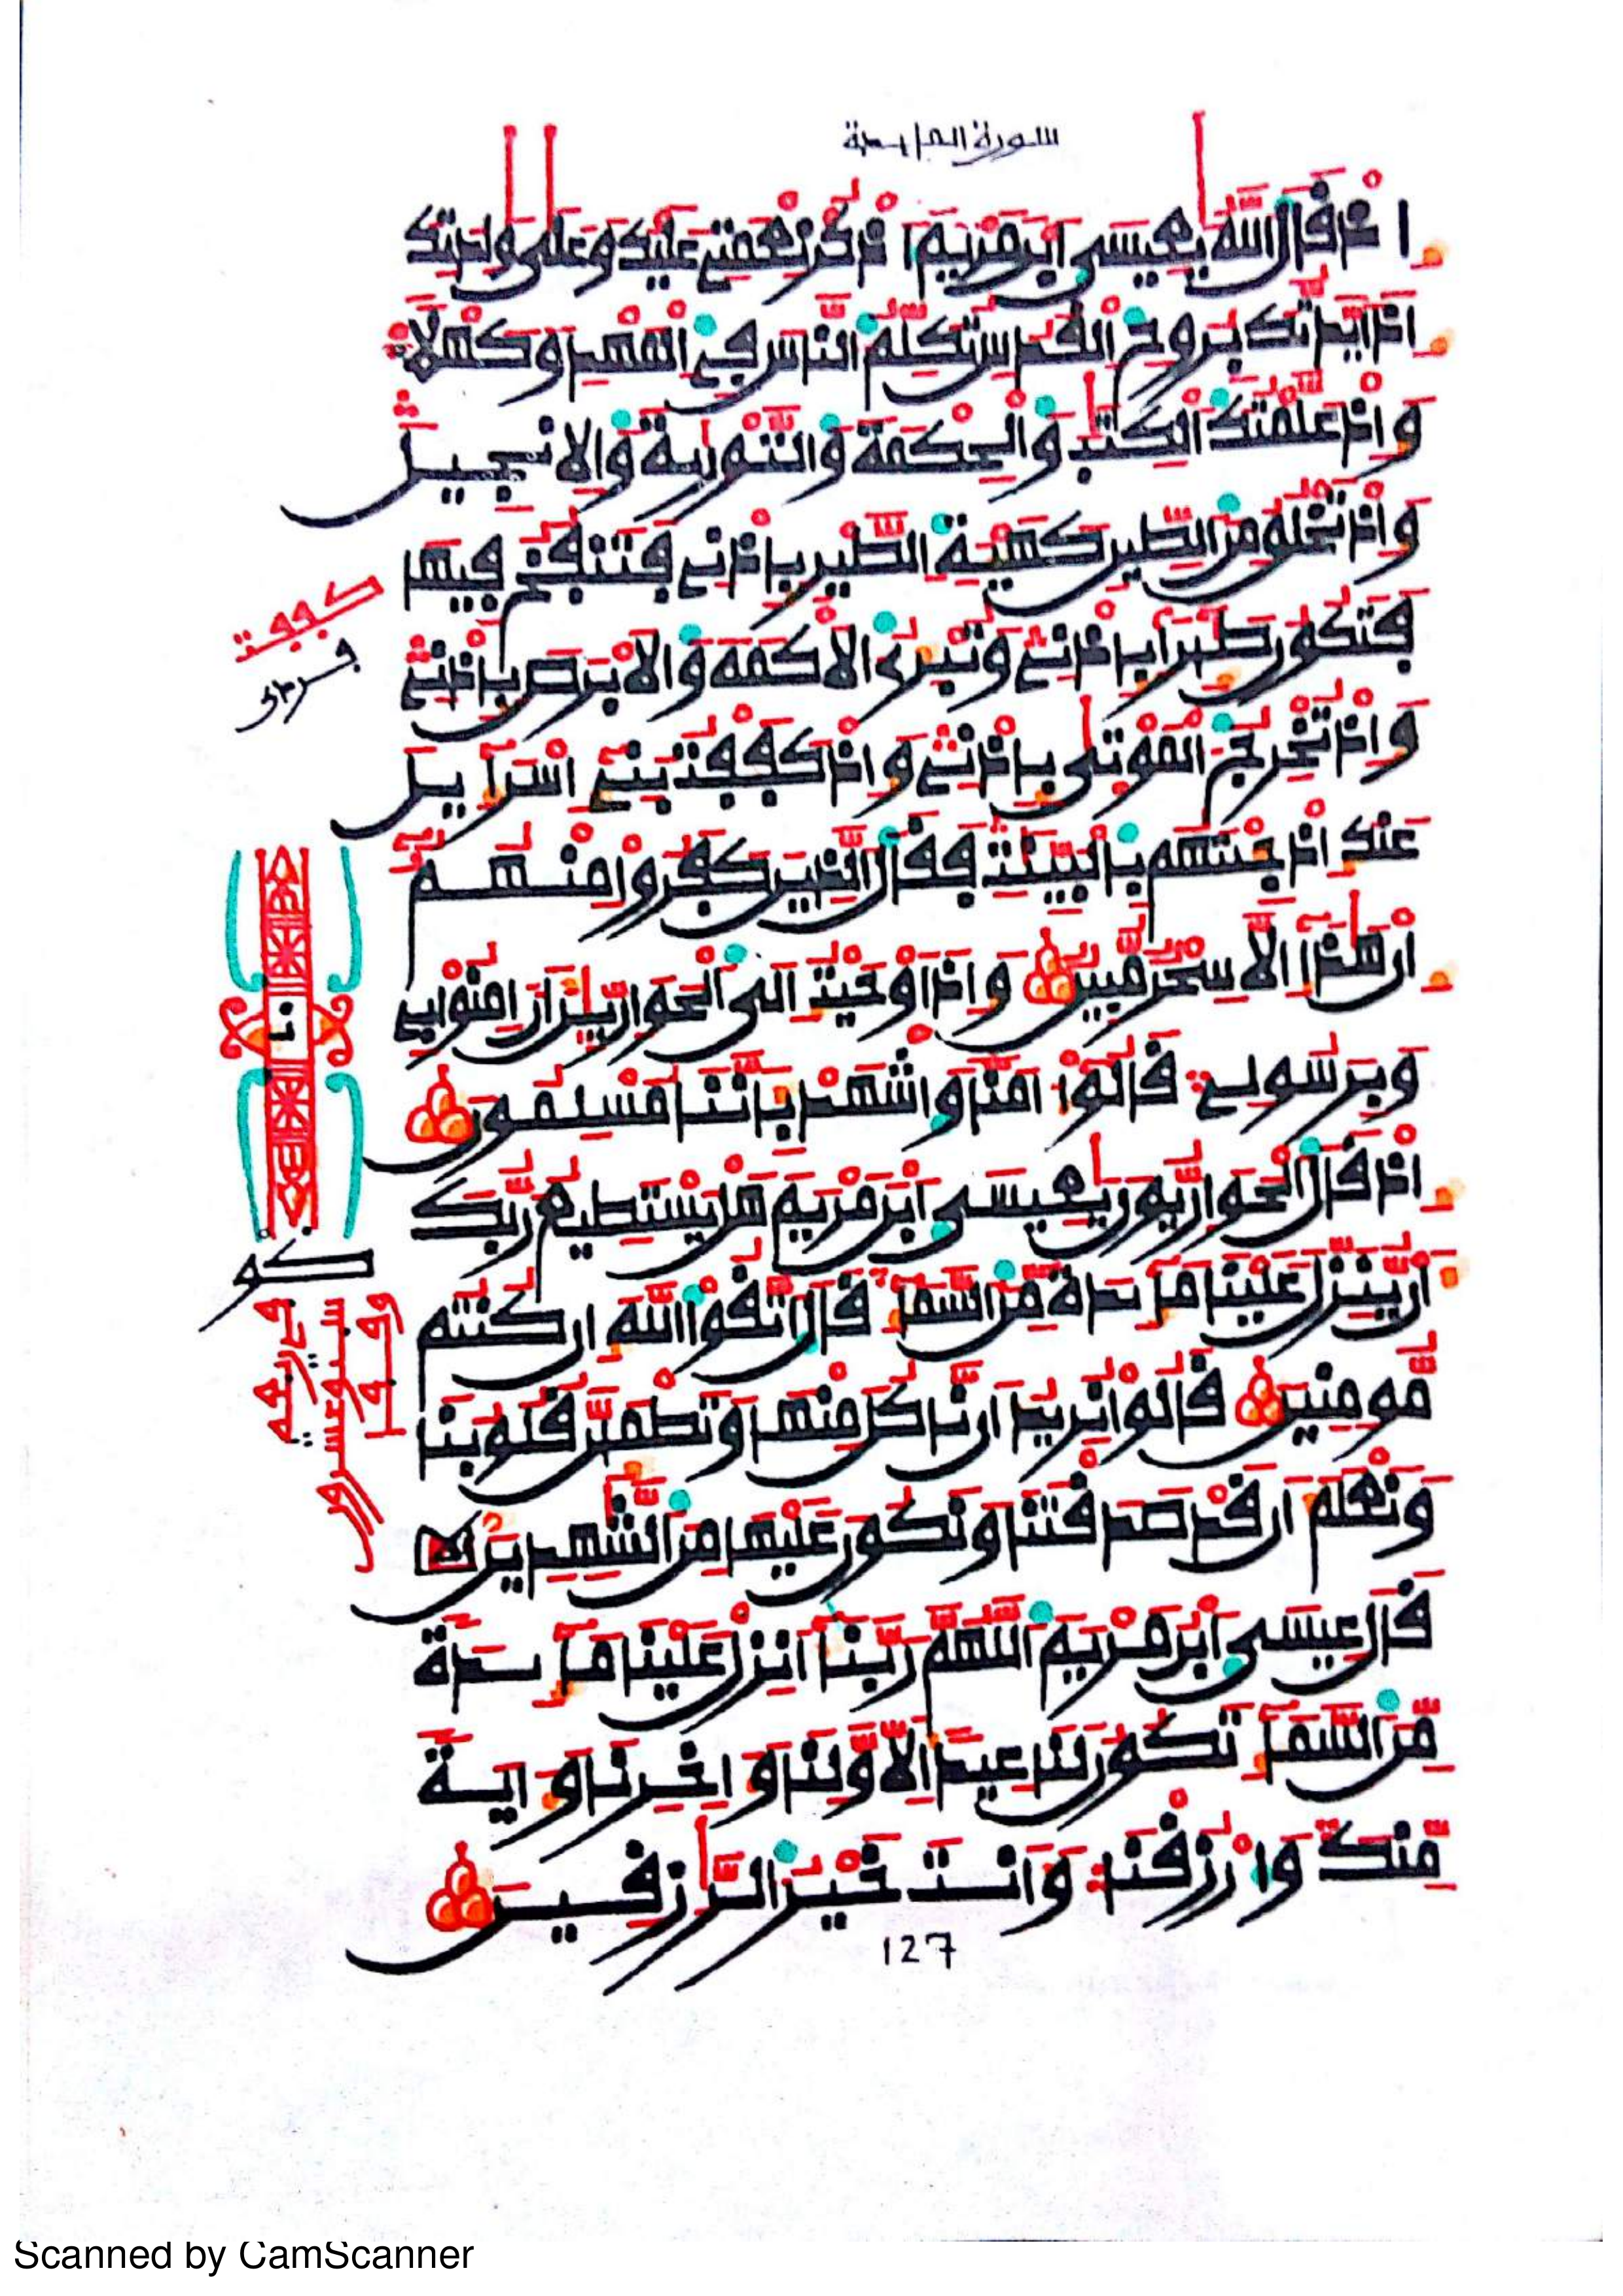 سورة المايدة
اذ قال الله يعيسى ابن مريم اذكر نعمتي عليك وعلى ولدتك
اذ ايدتك بروح القدس تكلم الناس في المهد وكهلا
واذ علمتك الكتب والحكمة والتورية والانجيل
واذ تخلق من الطين كهية الطير باذني فتنفخ فيها
فتكون طيرا باذني وتبري الاكمه والابرص باذني
واذ تخرج الموتى باذني واذ كففت بني اسرآيل
عنك اذ جيتهم بالبينت فقال الذين كفروا منهم
ان هذا الا سحر مبين واذ اوحيت الى الحوارين ان امنوا بي
وبرسولي قالوا امنا واشهد باننا مسلمون
اذ قال الحواريون يعيسى ابن مريم هل يستطيع ربك
ان ينزل علينا مايدة من السما قال اتقوا الله ان كنتم
مومنين قالوا نريد ان ناكل منها وتطمين قلوبنا
ونعلم ان قد صدقتنا ونكون عليها من الشهدين
قال عيسى ابن مريم اللهم ربنا انزل علينا مايدة
من السما تكون لنا عيدا لاولنا واخرنا واية
منك وارزقنا وانت خير الرزقين
127
كففت
Scanned by CamScanner